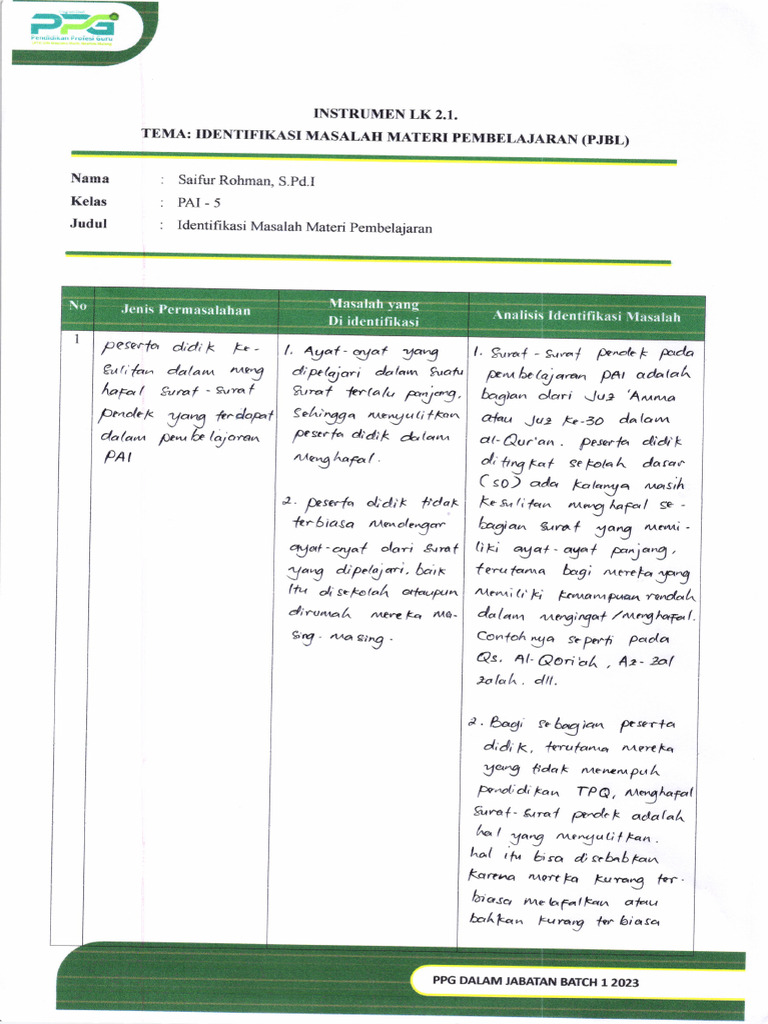 PPG
Pendidikan Profesi Guru
INSTRUMEN LK 2.1.
TEMA: IDENTIFIKASI MASALAH MATERI PEMBELAJARAN (PJBL)
Nama : Saifur Rohman, S.Pd.I
Kelas : PAI - 5
Judul : Identifikasi Masalah Materi Pembelajaran
No
Jenis Permasalahan
Masalah yang
Di identifikasi
Analisis Identifikasi Masalah
1
peserta didik ke-
sulitan dalam meng
hafal surat-surat
pendek yang terdapat
dalam pembelajaran
PAI
1. Ayat-ayat yang
dipelajari dalam suatu
surat terlalu panjang,
sehingga menyulitkan
peserta didik dalam
menghafal.
2. peserta didik tidak
terbiasa mendengar
ayat-ayat dari surat
yang dipelajari, baik
itu disekolah ataupun
dirumah mereka ma-
sing-masing.
1. Surat-surat pendek pada
pembelajaran PAI adalah
bagian dari Juz 'Amma
atau Juz ke-30 dalam
al-Qur'an. peserta didik
ditingkat sekolah dasar
(SD) ada kalanya masih
kesulitan menghafal se-
bagian surat yang memi-
liki ayat-ayat panjang,
terutama bagi mereka yang
memiliki kemampuan rendah
dalam mengingat/menghafal.
Contohnya seperti pada
Qs. Al-Qori'ah, Az-zal
zalah. dll.
2. Bagi sebagian peserta
didik, terutama mereka
yang tidak menempuh
pendidikan TPQ, menghafal
surat-surat pendek adalah
hal yang menyulitkan.
hal itu bisa disebabkan
karena mereka kurang ter-
biasa melafalkan atau
bahkan kurang terbiasa
PPG DALAM JABATAN BATCH 1 2023